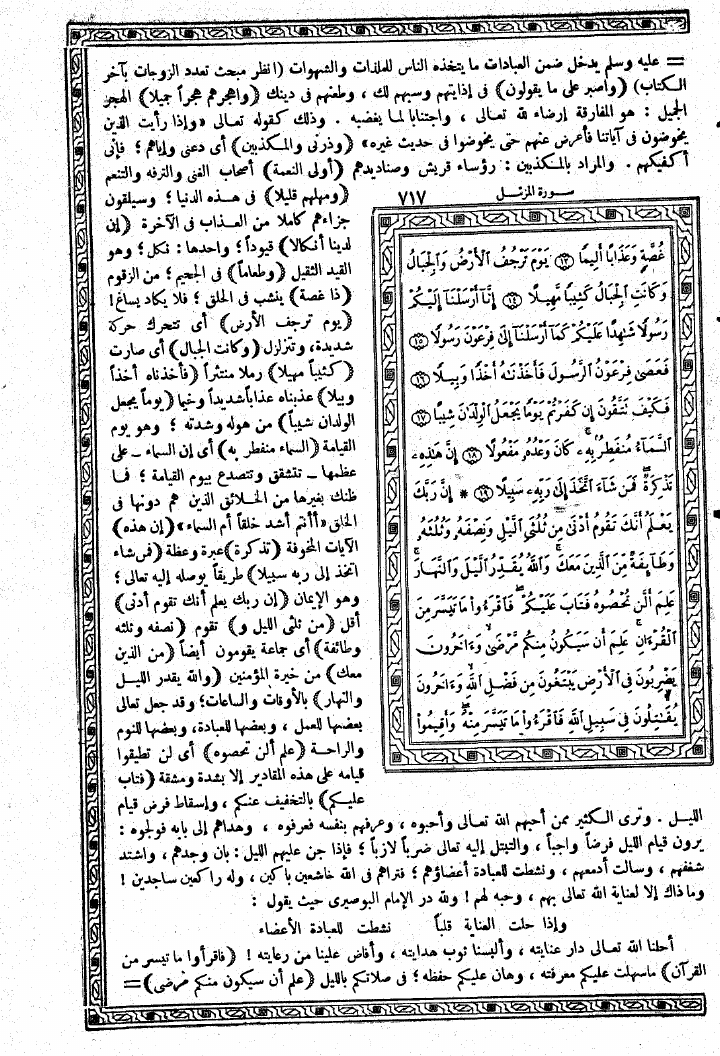 = عليه وسلم يدخل ضمن العبادات ما يتخذه الناس للملذات والشهوات (انظر مبحث تعدد الزوجات بآخر
الكتاب) (واصبر على ما يقولون) فى إذايتهم وسبهم لك ، وطعنهم فى دينك (واهجرهم هجراً جميلا) الهجر
الجميل : هو المفارقة إرضاء لله تعالى ، واجتنابا لما يغضبه . وذلك كقوله تعالى «وإذا رأيت الذين
يخوضون فى آياتنا فأعرض عنهم حتى يخوضوا فى حديث غيره» (وذرنى والمكذبين) أى دعنى وإياهم ؛ فإنى
أكفيكهم . والمراد بالمكذبين : رؤساء قريش وصناديدهم (أولى النعمة) أصحاب الغنى والترفه والتنعم
سورة المزمل ٧١٧
(ومهلهم قليلا) فى هذه الدنيا ؛ وسيلقون
جزاءهم كاملا من العذاب فى الآخرة (إن
لدينا أنكالا) قيوداً ؛ واحدها : نكل ؛ وهو
القيد الثقيل (وطعاماً) فى الجحيم ؛ من الزقوم
(ذا غصة) ينشب فى الحلق ؛ فلا يكاد يساغ !
(يوم ترجف الأرض) أى تتحرك حركة
شديدة ، وتتزلزل (وكانت الجبال) أى صارت
(كثيباً مهيلا) رملا منتثراً (فأخذناه أخذاً
وبيلا) عذبناه عذاباً شديداً وخيما (يوماً يجعل
الولدان شيباً) من هوله وشدته ؛ وهو يوم
القيامة (السماء منفطر به) أى إن السماء ــ على
عظمها ــ تتشقق وتتصدع بيوم القيامة ؛ فما
ظنك بغيرها من الخلائق الذين هم دونها فى
الخلق «أأنتم أشد خلقاً أم السماء» (إن هذه)
الآيات المخوفة (تذكرة) عبرة وعظة (فمن شاء
اتخذ إلى ربه سبيلا) طريقاً يوصله إليه تعالى ؛
وهو الإيمان (إن ربك يعلم أنك تقوم أدنى)
أقل (من ثلثى الليل و) تقوم (نصفه وثلثه
وطائفة) أى جماعة يقومون أيضاً (من الذين
معك) من خيرة المؤمنين (والله يقدر الليل
والنهار) بالأوقات والساعات ؛ وقد جعل تعالى
بعضها للعمل ، وبعضها للعبادة ، وبعضها للنوم
والراحة (علم ألن تحصوه) أى لن تطيقوا
قيامه على هذه المقادير إلا بشدة ومشقة (فتاب
عليكم) بالتخفيف عنكم ، وإسقاط فرض قيام
غُصَّةٍ وَعَذَابًا أَلِيمًا ١٣ يَوْمَ تَرْجُفُ ٱلْأَرْضُ وَٱلْجِبَالُ
وَكَانَتِ ٱلْجِبَالُ كَثِيبًا مَّهِيلًا ١٤ إِنَّآ أَرْسَلْنَآ إِلَيْكُمْ
رَسُولًا شَٰهِدًا عَلَيْكُمْ كَمَآ أَرْسَلْنَآ إِلَىٰ فِرْعَوْنَ رَسُولًا ١٥
فَعَصَىٰ فِرْعَوْنُ ٱلرَّسُولَ فَأَخَذْنَٰهُ أَخْذًا وَبِيلًا ١٦
فَكَيْفَ تَتَّقُونَ إِن كَفَرْتُمْ يَوْمًا يَجْعَلُ ٱلْوِلْدَٰنَ شِيبًا ١٧
ٱلسَّمَآءُ مُنفَطِرٌۢ بِهِۦ كَانَ وَعْدُهُۥ مَفْعُولًا ١٨ إِنَّ هَٰذِهِۦ
تَذْكِرَةٌ فَمَن شَآءَ ٱتَّخَذَ إِلَىٰ رَبِّهِۦ سَبِيلًا ١٩ * إِنَّ رَبَّكَ
يَعْلَمُ أَنَّكَ تَقُومُ أَدْنَىٰ مِن ثُلُثَىِ ٱلَّيْلِ وَنِصْفَهُۥ وَثُلُثَهُۥ
وَطَآئِفَةٌ مِّنَ ٱلَّذِينَ مَعَكَ وَٱللَّهُ يُقَدِّرُ ٱلَّيْلَ وَٱلنَّهَارَ
عَلِمَ أَن لَّن تُحْصُوهُ فَتَابَ عَلَيْكُمْ فَٱقْرَءُوا۟ مَا تَيَسَّرَ مِنَ
ٱلْقُرْءَانِ عَلِمَ أَن سَيَكُونُ مِنكُم مَّرْضَىٰ وَءَاخَرُونَ
يَضْرِبُونَ فِى ٱلْأَرْضِ يَبْتَغُونَ مِن فَضْلِ ٱللَّهِ وَءَاخَرُونَ
يُقَٰتِلُونَ فِى سَبِيلِ ٱللَّهِ فَٱقْرَءُوا۟ مَا تَيَسَّرَ مِنْهُ وَأَقِيمُوا۟
الليل . وترى الكثير ممن أحبهم الله تعالى وأحبوه ، وعرفهم بنفسه فعرفوه ، وهداهم إلى بابه فولجوه :
يرون قيام الليل فرضاً واجباً ، والتبتل إليه تعالى ضرباً لازباً ؛ فإذا جن عليهم الليل : بان وجدهم ، واشتد
شغفهم ، وسالت أدمعهم ، ونشطت للعبادة أعضاؤهم ؛ فتراهم فى الله خاشعين باكين ، وله راكعين ساجدين !
وما ذاك إلا لعناية الله تعالى بهم ، وحبه لهم ! ولله در الإمام البوصيرى حيث يقول :
وإذا حلت العناية قلباً نشطت للعبادة الأعضاء
أحلنا الله تعالى دار عنايته ، وألبسنا ثوب هدايته ، وأفاض علينا من رعايته ! (فاقرأوا ما تيسر من
القرآن) ما سهلت عليكم معرفته ، وهان عليكم حفظه ؛ فى صلاتكم بالليل (علم أن سيكون منكم مرضى) =